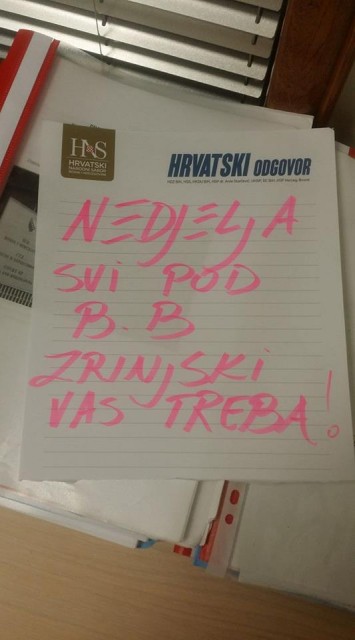 HNS
HRVATSKI
HRVATSKI ODGOVOR
NEDJELJA
SVI POD
B.B
ZRINJSKI
VAS TREBA!